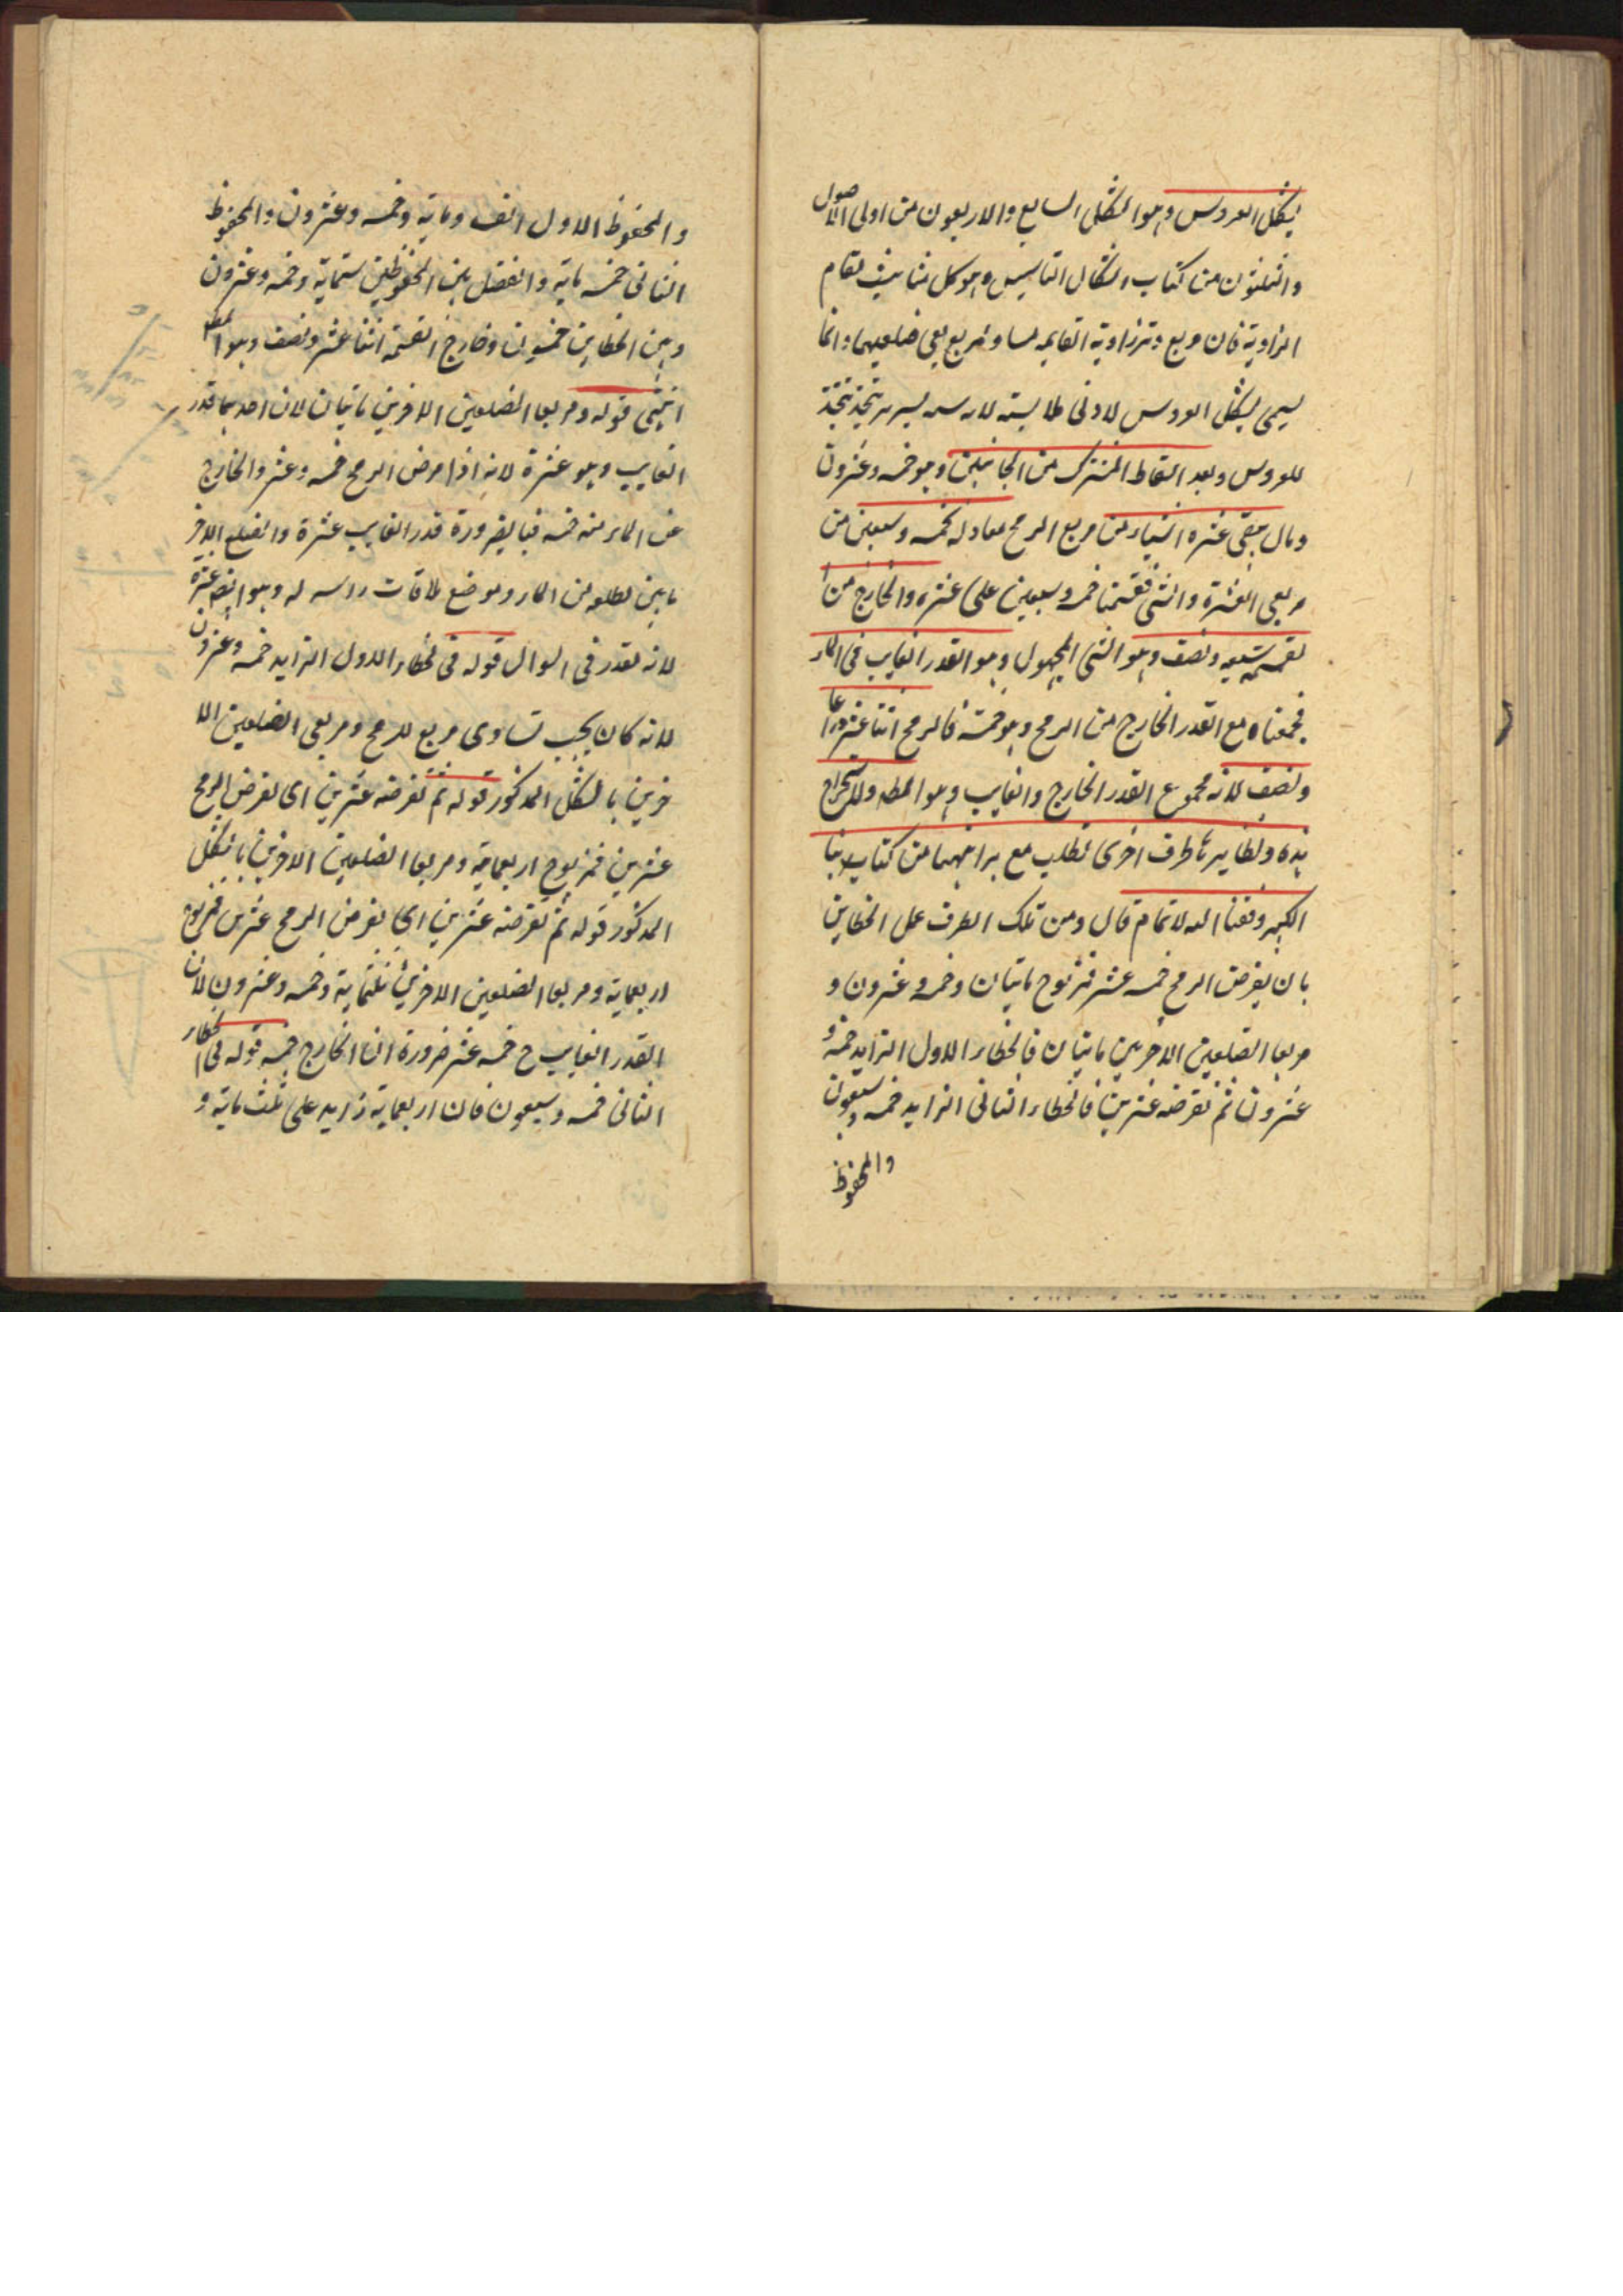 بشكل العروس وهو الشكل السابع والاربعون من اولى الاصول
والثلثون من كتاب اشكال التاسيس وهو كل مثلث قائم
الزاوية فان مربع وتر زاوية القايمه مساو لمربعي ضلعيها وانما
يسمى بشكل العروس لادنى ملابسته
للعروس وبعد اسقاط المشترك من الجانبين وهو خمسه وعشرون
ومال يبقى عشره اشياء من مربع الرمح معادله لخمسه وسبعين من
مربعي العشرة والشئ فقسمنا خمسه وسبعين على عشره والخارج من
القسمه سبعه ونصف وهو الشئ المجهول وهو القدر الغايب في الماء
فجمعناه مع القدر الخارج من الرمح وهو خمسة فالرمح اثنا عشر ذراعا
ونصف لانه مجموع القدر الخارج والغايب وهو المط ولاستخراج
هذه ونظايرها طرق اخرى تطلب مع براهينها من كتابنا
الكبير وفقنا الله لاتمامه قال ومن تلك الطرق عمل الخطاين
بان يفرض الرمح خمسه عشر فمربوح ماتيان وخمسه وعشرون و
مربعا الضلعين الاخرين مايتان فالخطاء الاول الزايد خمسه و
عشرون ثم نفرضه عشرين فالخطاء الثاني الزايد خمسه وسبعون
والمحفوظ
والمحفوظ الاول الف وماية وخمسه وعشرون والمحفوظ
الثاني خمسه ماية والفضل بين المحفوظين ستماية وخمسه وعشرون
وبين الخطاين خمسون وخارج القسمة اثنا عشر ونصف وهو المط
انتهى قوله ومربعا الضلعين الاخرين مايتان لان احدهما قدر
الغايب وهو عشرة لانه اذا فرض الرمح خمسه وعشر والخارج
عن الماء منه خمسه فبالضرورة قدر الغايب عشرة والضلع الاخر
ما بين مطلعه من الماء وموضع ملاقات راسه له وهو ايضا عشرة
لانه لقدر في السوال قوله في لخطاء الاول الزايد خمسه وعشرون
لانه كان يجب تساوى مربع للرمح ومربعي الضلعين الا
خرين بالشكل المذكور قوله ثم نفرضه عشرين اى نفرض الرمح
عشرين فمربوح اربعماية ومربعا الضلعين الاخرين بالشكل
المذكور قوله ثم نفرضه عشرين اى نفرض الرمح عشرين فمربوح
اربعماية ومربعا الضلعين الاخرين ثلثماية وخمسه وعشرون لان
القدر الغايب ح خمسه عشر ضرورة ان الخارج خمسه قوله في الخطاء
الثاني خمسه وسبعون فان اربعماية زايد على ثلث ماية و